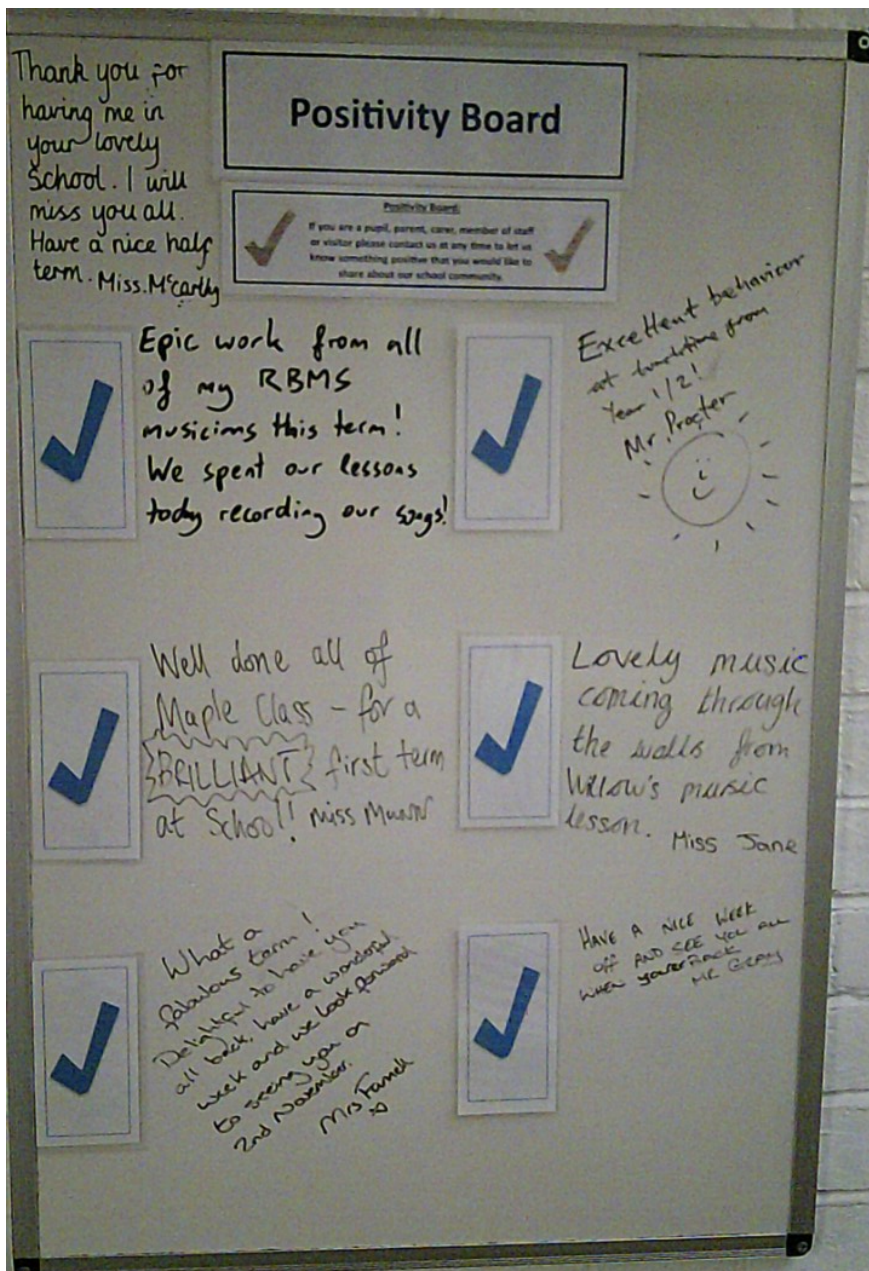 Thank you for
having me in
your lovely
School. I will
miss you all.
Have a nice half
term. Miss. McCarthy
Positivity Board
Positivity Board:
If you are a pupil, parent, carer, member of staff
or visitor please contact us at any time to let us
know something positive that you would like to
share about our school community.
Epic work from all
of my RBMS
musicians this term!
We spent our lessons
today recording our songs!
Excellent behaviour
at lunchtime from
Year 1/2!
Mr. Procter
Well done all of
Maple Class - for a
BRILLIANT first term
at School! Miss Munn
Lovely music
coming through
the walls from
Willow's music
lesson.
Miss Jane
What a
fabulous term!
Delightful to have you
all back, have a wonderful
week and we look forward
to seeing you on
2nd November.
Mrs Farrell
HAVE A NICE WEEK
OFF AND SEE YOU ALL
WHEN your BACK
MR GRAY